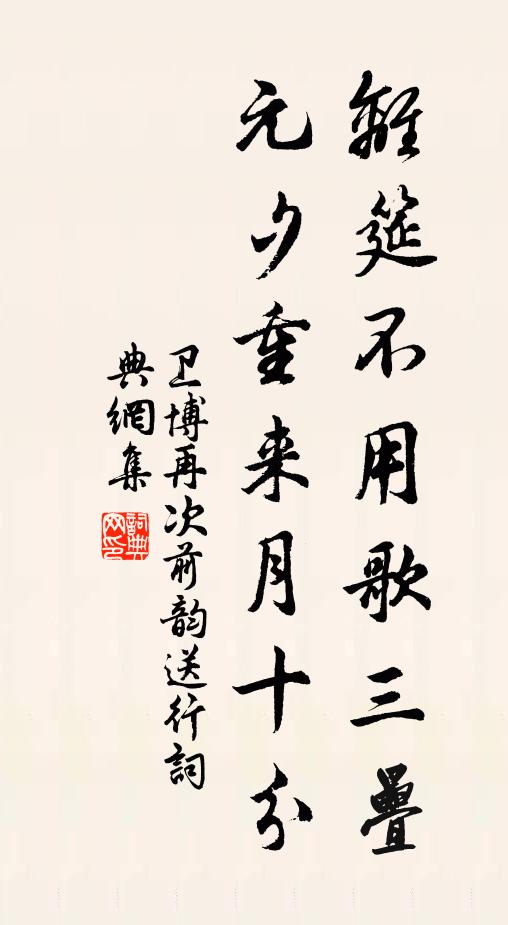 離筵不用歌三疊
元夕重来月十分
卫博再次前韵送行詞
典網集
詞典网印